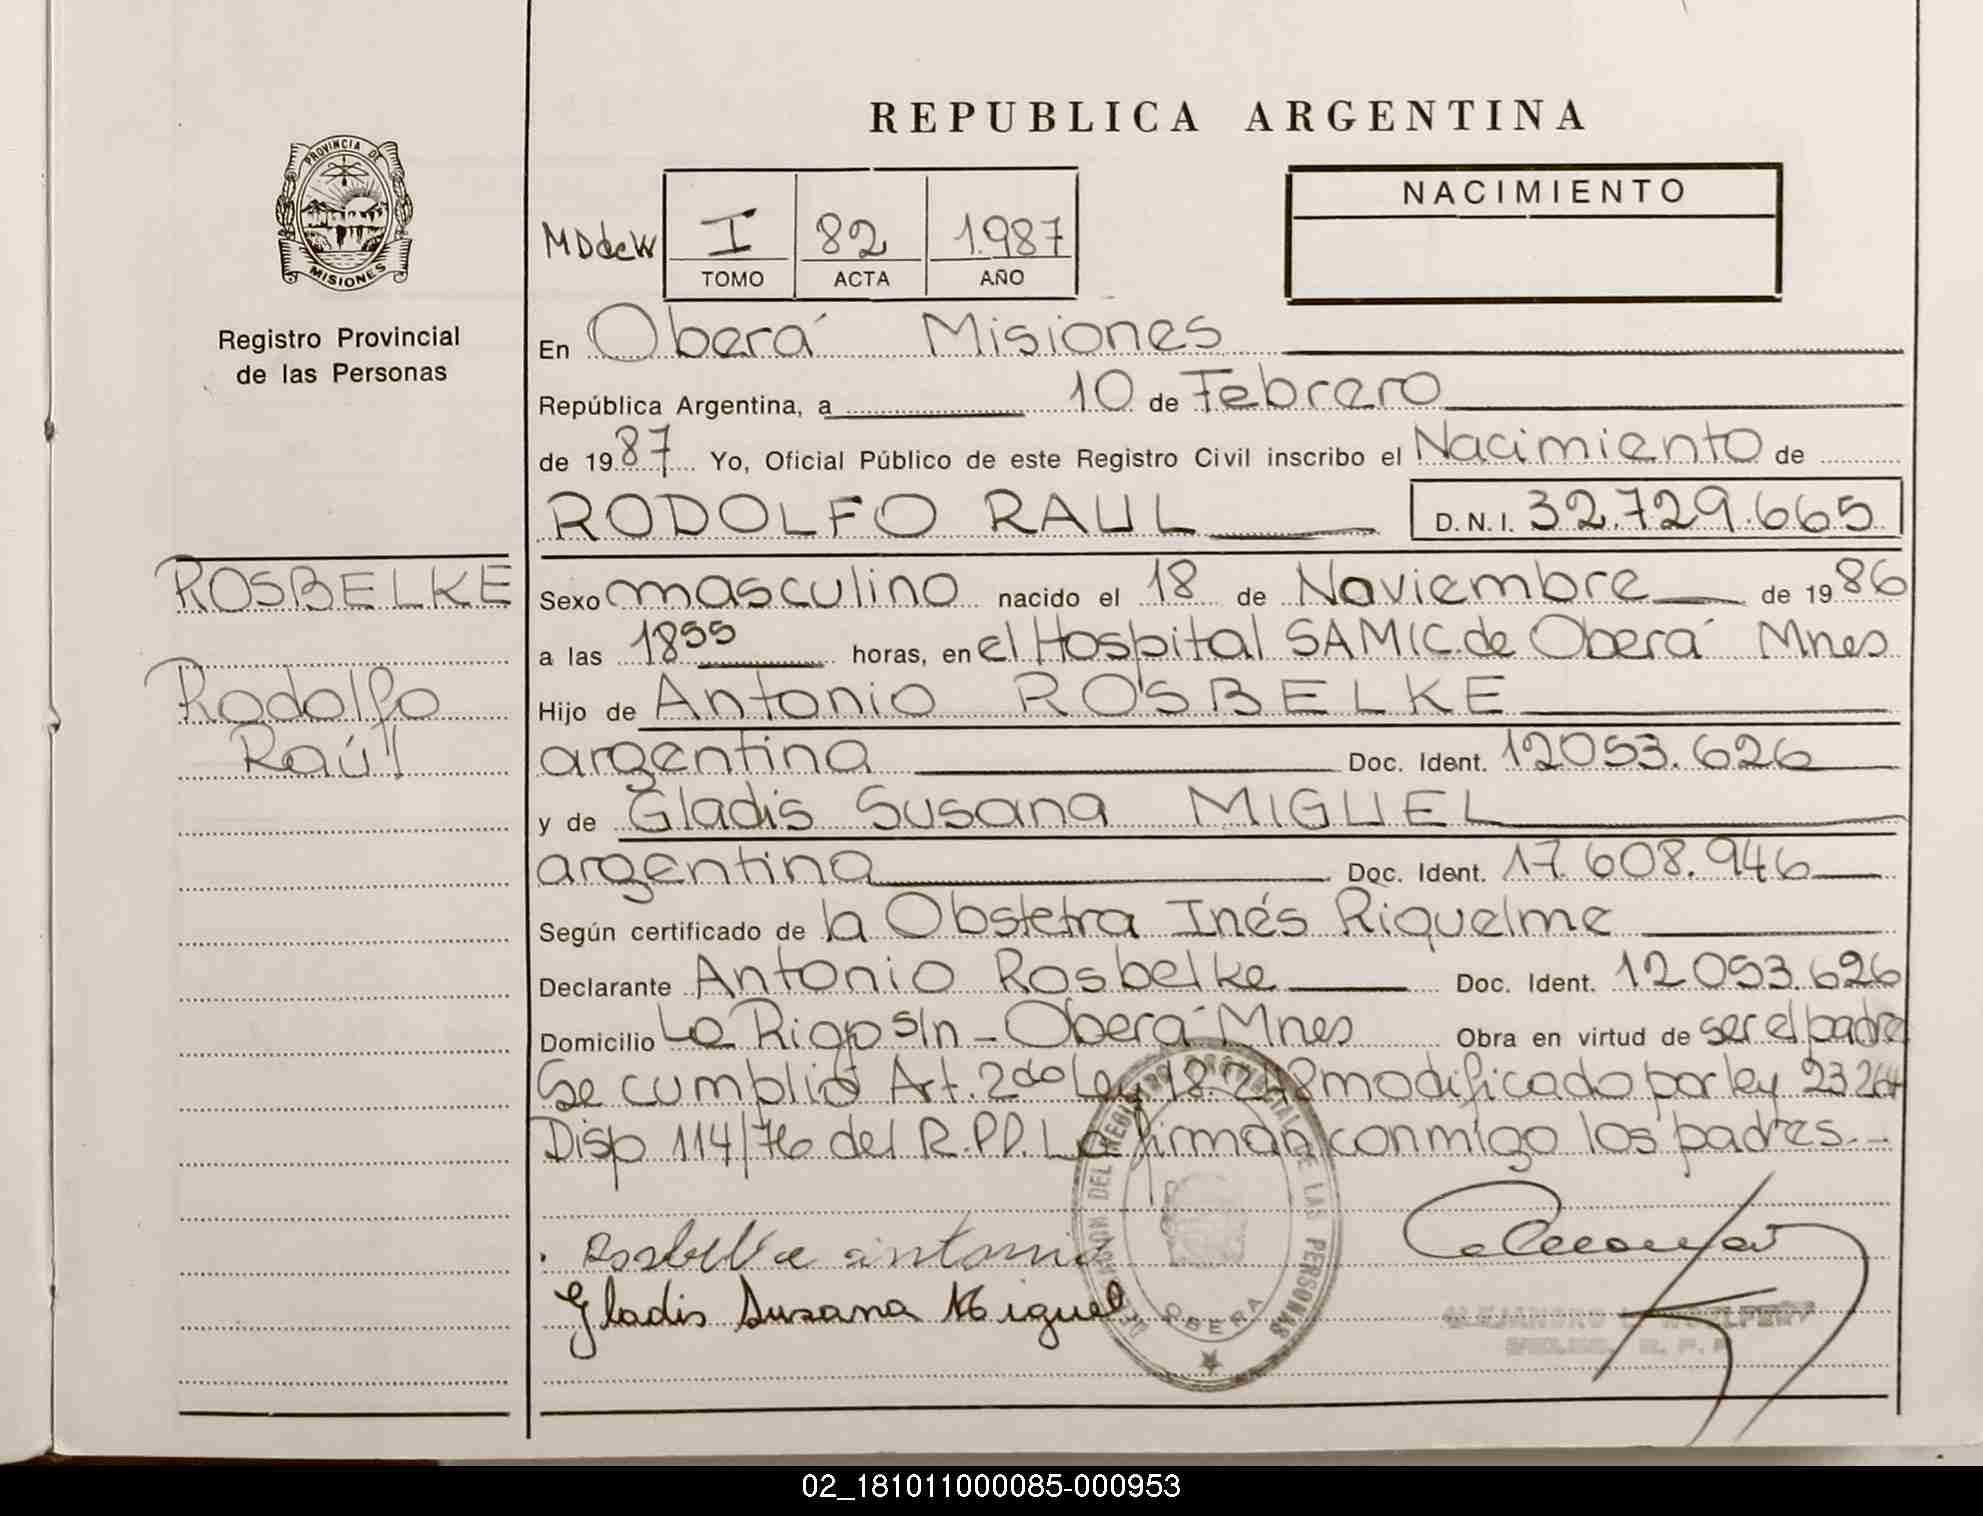 REPUBLICA ARGENTINA
PROVINCIA DE
MISIONES
Registro Provincial
de las Personas
NACIMIENTO
MDdeW I 82 1.987
TOMO ACTA AÑO
En Oberá Misiones
República Argentina, a 10 de Febrero
de 1987 Yo, Oficial Público de este Registro Civil inscribo el Nacimiento de
RODOLFO RAUL D.N.I. 32.729.665
ROSBELKE
Rodolfo
Raúl
Sexo masculino nacido el 18 de Noviembre de 1986
a las 1855 horas, en el Hospital SAMIC. de Oberá Mnes
Hijo de Antonio ROSBELKE
argentina Doc. Ident. 12053.626
y de Gladis Susana MIGUEL
argentina Doc. Ident. 17.608.946
Según certificado de la Obstetra Inés Riquelme
Declarante Antonio Rosbelke Doc. Ident. 12053.626
Domicilio s/n - Oberá Mnes Obra en virtud de ser el padre
Se cumplió Art. 2do Ley 18.248 modificado por ley 23.264
Disp 114/76 del R.P.P. La firman conmigo los padres.-
Rosbelke Antonio
Gladis Susana Miguel
DELEGACION DEL REGISTRO PROVINCIAL DE LAS PERSONAS
OBERA
ALEJANDRO
02_181011000085-000953